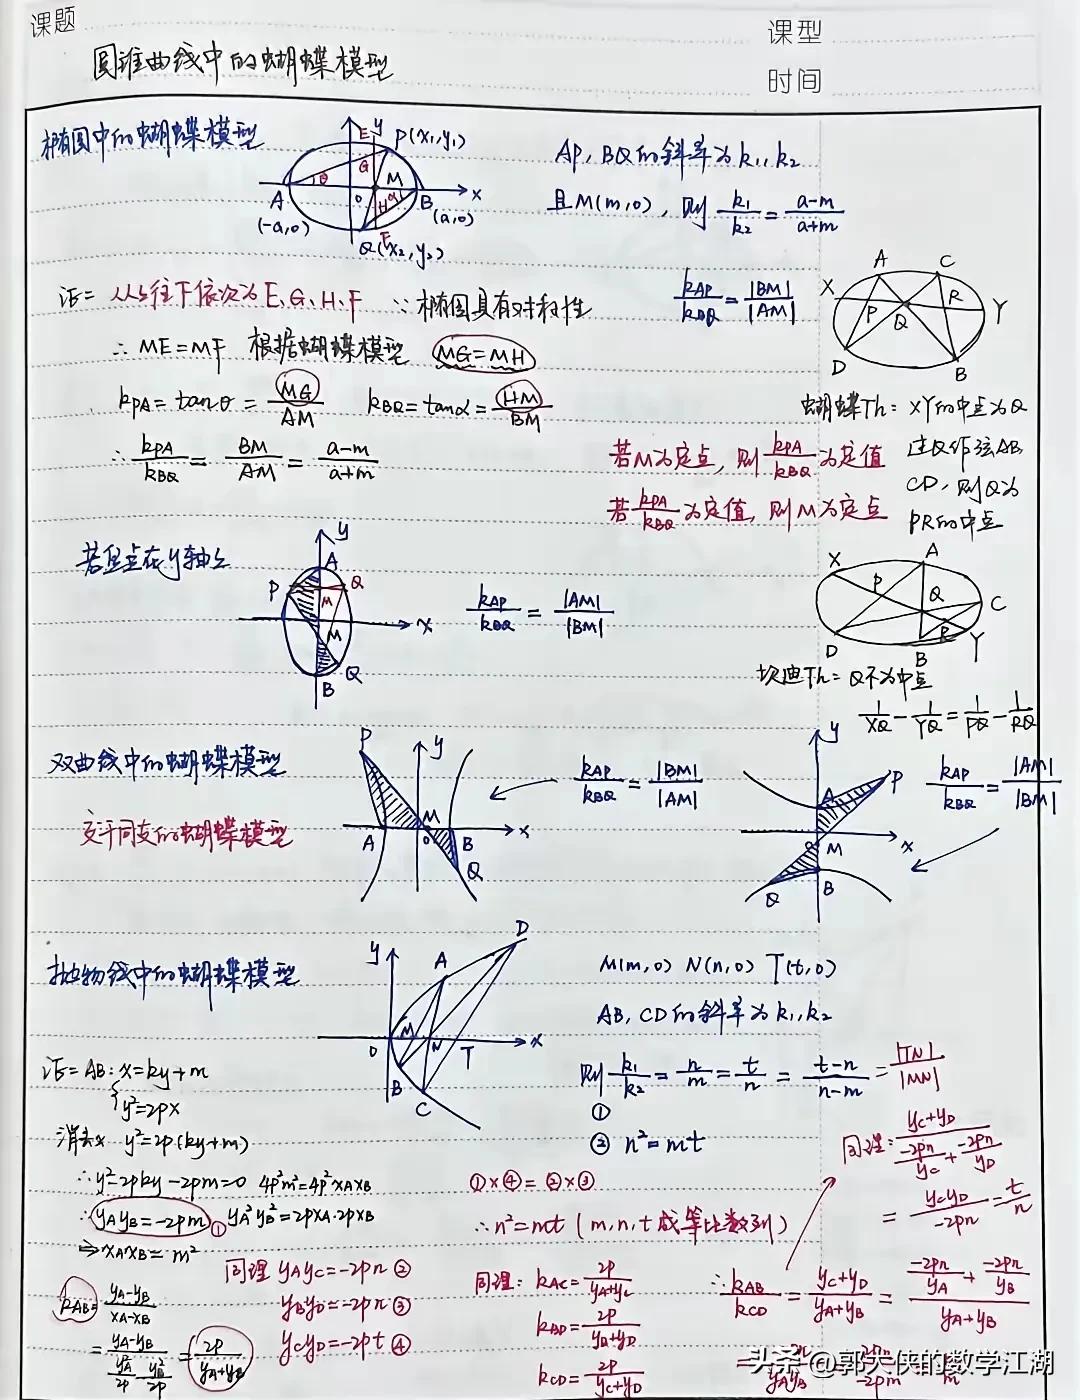 课题
课型
时间
圆锥曲线中的蝴蝶模型
椭圆中的蝴蝶模型
E y P(x₁,y₁)
G
θ M α
A O H B x
(-a,0) (a,0)
F
Q(x₂,y₂)
AP, BQ的斜率为k₁,k₂
且M(m,0), 则 k₁/k₂ = (a-m)/(a+m)
证= 从上往下依次为E、G、H、F ∵椭圆具有对称性
k_AP/k_BQ = |BM|/|AM|
A C
X P Q R Y
D B
∴ ME=MF 根据蝴蝶模型 MG=MH
k_PA = tanθ = MG/AM k_BQ = tanα = HM/BM
∴ k_PA/k_BQ = BM/AM = (a-m)/(a+m)
蝴蝶Th: XY的中点为Q
过Q作弦AB
CD, 则Q为
PR的中点
若M为定点, 则 k_PA/k_BQ 为定值
若 k_PA/k_BQ 为定值, 则M为定点
若焦点在y轴上
y
A
P Q
M
x
M
Q
B
k_AP/k_BQ = |AM|/|BM|
X A
P Q C
D B R Y
坎迪Th= Q不为中点
1/XQ - 1/YQ = 1/PQ - 1/RQ
双曲线中的蝴蝶模型
交于同支的蝴蝶模型
P y
M
A O B x
Q
k_AP/k_BQ = |BM|/|AM|
y
A P
O M x
Q B
k_AP/k_BQ = |AM|/|BM|
抛物线中的蝴蝶模型
y A D
O M N T x
B C
M(m,0) N(n,0) T(t,0)
AB, CD的斜率为k₁,k₂
则 k₁/k₂ = n/m = t/n = (t-n)/(n-m) = |TN|/|MN|
①
② n²=mt
证= AB: x=ky+m
{ y²=2px
消去x y²=2p(ky+m)
∴y²-2pky-2pm=0 4p²m²=4p²x_Ax_B
∴ y_Ay_B=-2pm ① y_A²y_B²=2px_A·2px_B
⇒x_Ax_B=m²
同理 y_Ay_C=-2pn ②
y_By_D=-2pn ③
y_Cy_D=-2pt ④
k_AB = (y_A-y_B)/(x_A-x_B)
= (y_A-y_B)/(y_A²/2p - y_B²/2p) = 2p/(y_A+y_B)
①×④=②×③
∴n²=mt (m,n,t成等比数列)
同理: k_AC = 2p/(y_A+y_C)
k_BD = 2p/(y_B+y_D)
k_CD = 2p/(y_C+y_D)
∴ k_AB/k_CD = (y_C+y_D)/(y_A+y_B) = (-2pn/y_A + -2pn/y_B)/(y_A+y_B)
同理: (y_C+y_D)/(-2pn/y_C + -2pn/y_D)
= y_Cy_D/-2pn = t/n
头条 @郭大侠的数学江湖